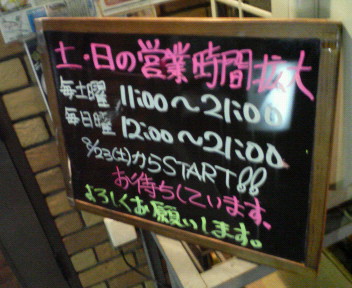 土・日の営業時間拡大
毎土曜 11:00～21:00
毎日曜 12:00～21:00
8/23(土)からSTART!!
お待ちしています、
よろしくお願いします。